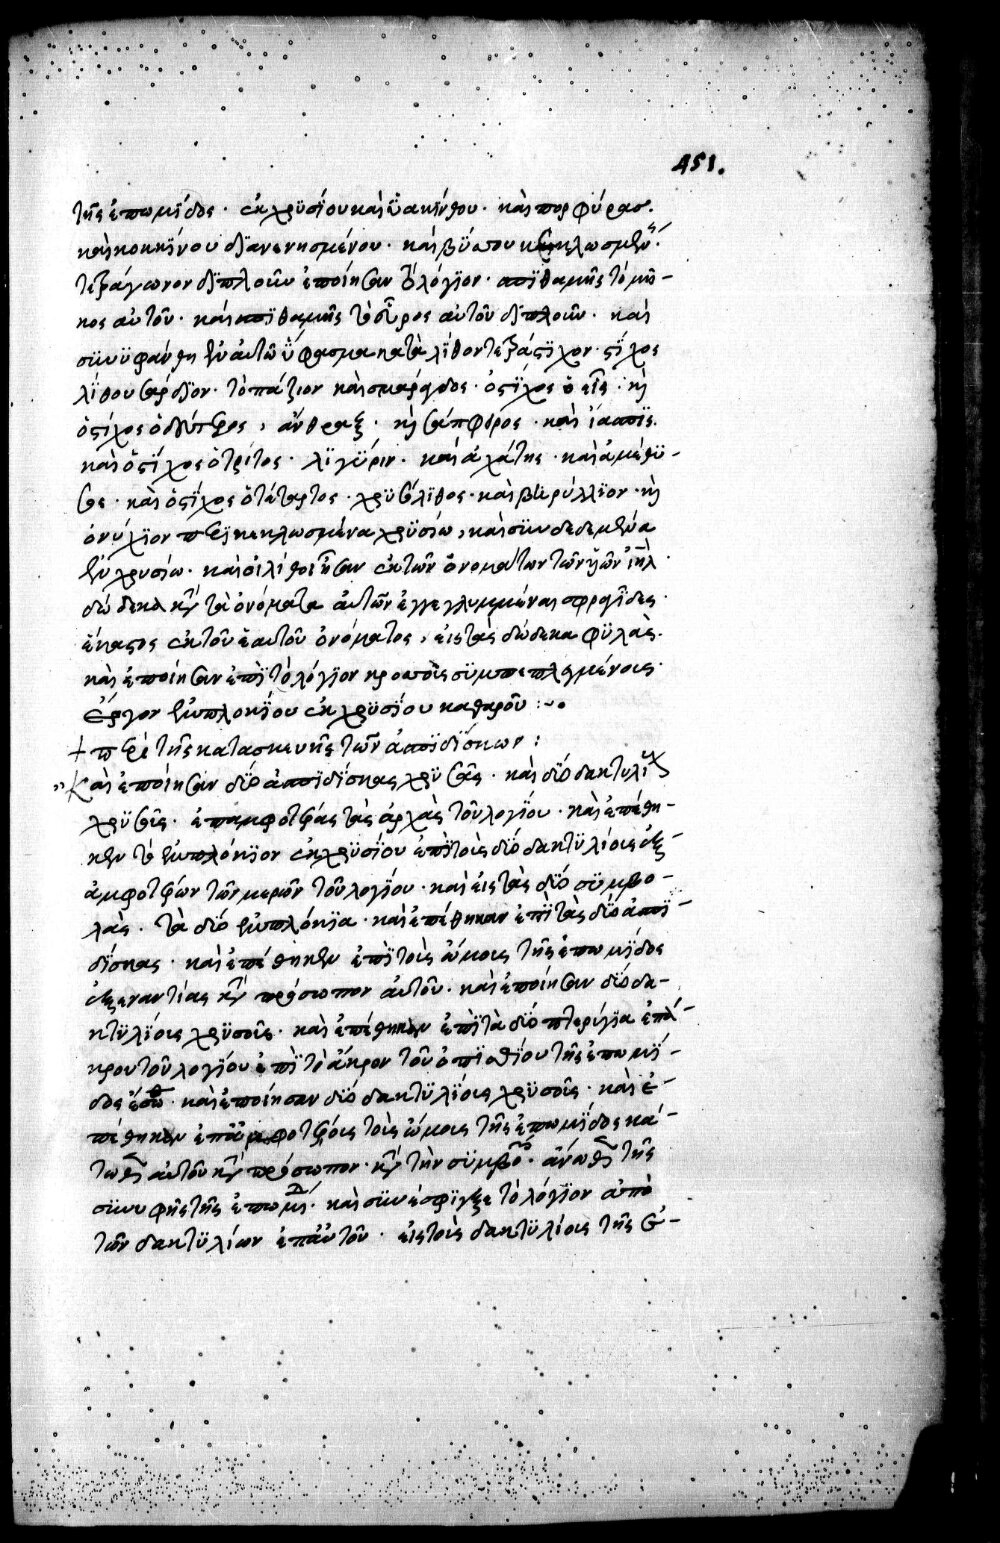 451.
τῆς ἐπωμίδος · ἐκ χρυσίου καὶ ὑακίνθου · καὶ πορφύρας ·
καὶ κοκκίνου διανενησμένου · καὶ βύσσου κεκλωσμένης ·
τετράγωνον διπλοῦν ἐποίησαν τὸ λόγιον · σπιθαμῆς τὸ μῆ-
κος αὐτοῦ · καὶ σπιθαμῆς τὸ εὖρος αὐτοῦ διπλοῦν · καὶ
συνυφάνθη ἐν αὐτῷ ὕφασμα κατὰ λίθον τετράστιχον · στίχος
λίθου σάρδιον · τοπάζιον καὶ σμάραγδος · ὁ στίχος ὁ εἷς · καὶ
ὁ στίχος ὁ δεύτερος, ἄνθραξ · καὶ σάπφιρος · καὶ ἴασπις ·
καὶ ὁ στίχος ὁ τρίτος · λιγύριν · καὶ ἀχάτης · καὶ ἀμέθυ-
σος · καὶ ὁ στίχος ὁ τέταρτος · χρυσόλιθος · καὶ βηρύλλιον · καὶ
ὀνύχιον περικεκλωσμένα χρυσίω, καὶ συνδεδεμένα
ἐν χρυσίω · καὶ οἱ λίθοι ἦσαν ἐκ τῶν ὀνομάτων τῶν υἱῶν ἰηλ ·
δώδεκα κατὰ τὰ ὀνόματα αὐτῶν ἐγγεγλυμμέναι σφραγῖδες ·
ἕκαστος ἐκ τοῦ ἑαυτοῦ ὀνόματος, εἰς τὰς δώδεκα φυλὰς ·
καὶ ἐποίησαν ἐπὶ τὸ λόγιον κροσσοὺς συμπεπλεγμένους ·
ἔργον ἐμπλοκίου ἐκ χρυσίου καθαροῦ :~
+ περὶ τῆς κατασκευῆς τῶν ἀσπιδίσκων :
Καὶ ἐποίησαν δύο ἀσπιδίσκας χρυσᾶς · καὶ δύο δακτυλίους
χρυσοῦς · ἐπ' ἀμφοτέρας τὰς ἀρχὰς τοῦ λογίου · καὶ ἐπέθη-
κεν τὸ ἐμπλόκιον ἐκ χρυσίου ἐπὶ τοὺς δύο δακτυλίους ἐξ-
ἀμφοτέρων τῶν μερῶν τοῦ λογίου · καὶ εἰς τὰς δύο συμβο-
λὰς · τὰ δύο ἐμπλόκια · καὶ ἐπέθηκαν ἐπὶ τὰς δύο ἀσπι-
δίσκας · καὶ ἐπέθηκεν ἐπὶ τοὺς ὤμους τῆς ἐπωμίδος
ἐξεναντίας κατὰ πρόσωπον αὐτοῦ · καὶ ἐποίησαν δύο δα-
κτυλίους χρυσοῦς · καὶ ἐπέθηκαν ἐπὶ τὰ δύο πτερύγια ἐπ' ἄ-
κρου τοῦ λογίου ἐπὶ τὸ ἄκρον τοῦ ὀπισθίου τῆς ἐπωμί-
δος ἔσωθεν · καὶ ἐποίησαν δύο δακτυλίους χρυσοῦς · καὶ ἐ-
πέθηκαν ἐπ' ἀμφοτέρους τοὺς ὤμους τῆς ἐπωμίδος κά-
τωθεν αὐτοῦ κατὰ πρόσωπον · κατὰ τὴν συμβολὴν · ἄνωθεν τῆς
συνυφῆς τῆς ἐπωμίδος · καὶ συνέσφιγξε τὸ λόγιον ἀπὸ
τῶν δακτυλίων ἐπ' αὐτοῦ · εἰς τοὺς δακτυλίους τῆς ἐ-